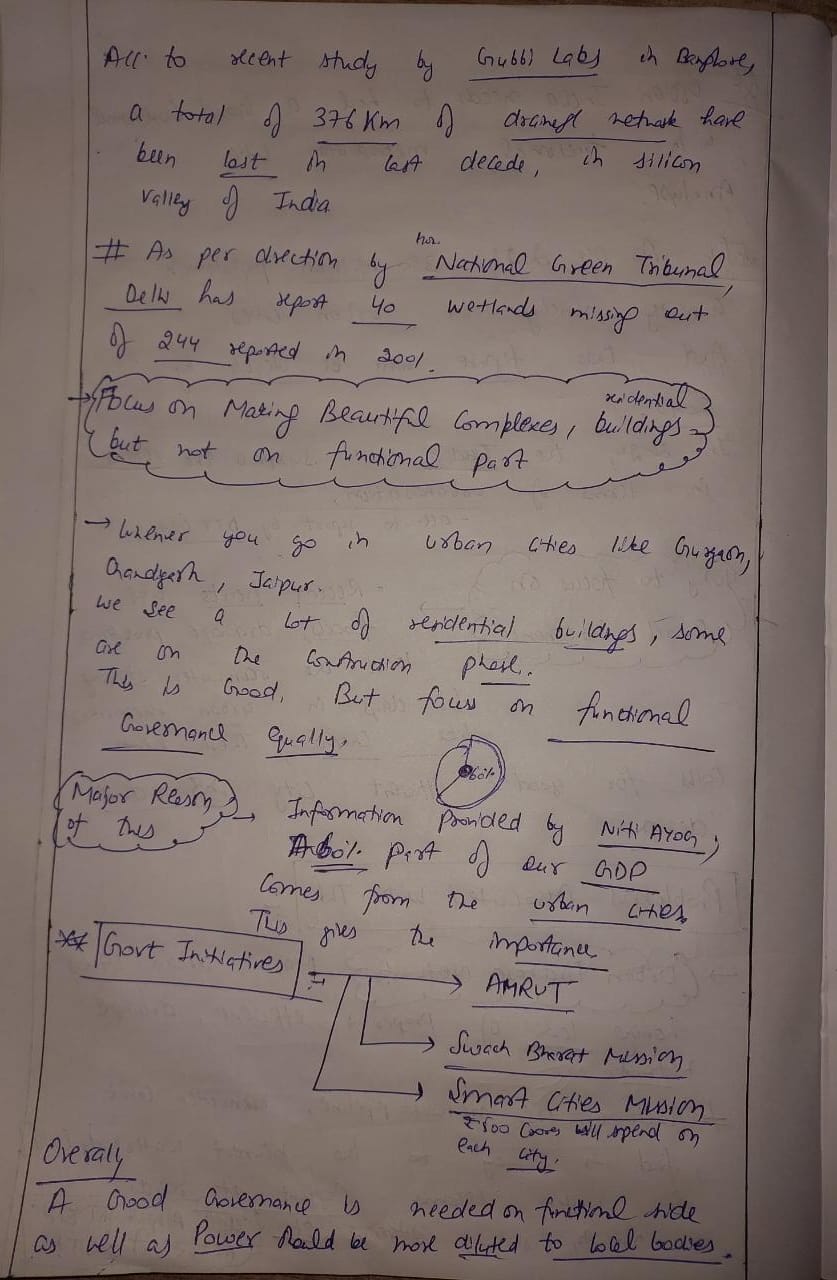 Acc. to recent study by Gubbi Labs in Banglore,
a total of 376 Km of drainage network have
been lost in last decade, in silicon
valley of India
# As per direction by hon. National Green Tribunal,
Delhi has report 40 wetlands missing out
of 244 reported in 2001.
→ Focus on Making Beautiful Complexes, residential buildings
but not on functional part
→ Whenever you go in urban cities like Gurgaon,
Chandigarh, Jaipur.
we see a lot of residential buildings, some
are on the construction phase.
This is Good. But focus on functional
Governance equally.
60%
Major Reason
of this →
Information Provided by Niti Ayog,
A 60% part of our GDP
comes from the urban cities.
This gives the importance
** Govt Initiatives :-
→ AMRUT
→ Swach Bharat Mission
→ Smart Cities Mission
₹500 Crores will spend on
each city.
Overall
A Good Governance is needed on functional side
as well as Power should be more diluted to local bodies.